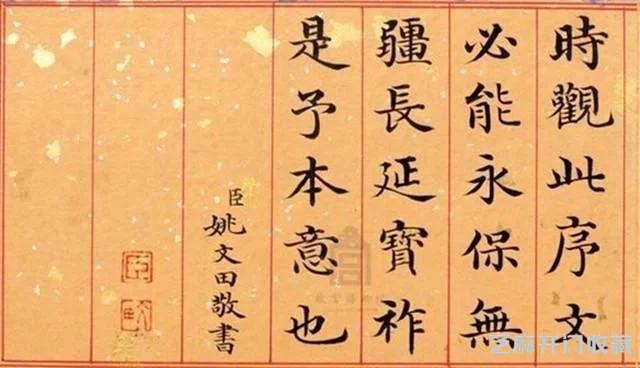 時觀此序文
必能永保無
疆長延寶祚
是予本意也
臣姚文田敬書
芝麻开门收藏